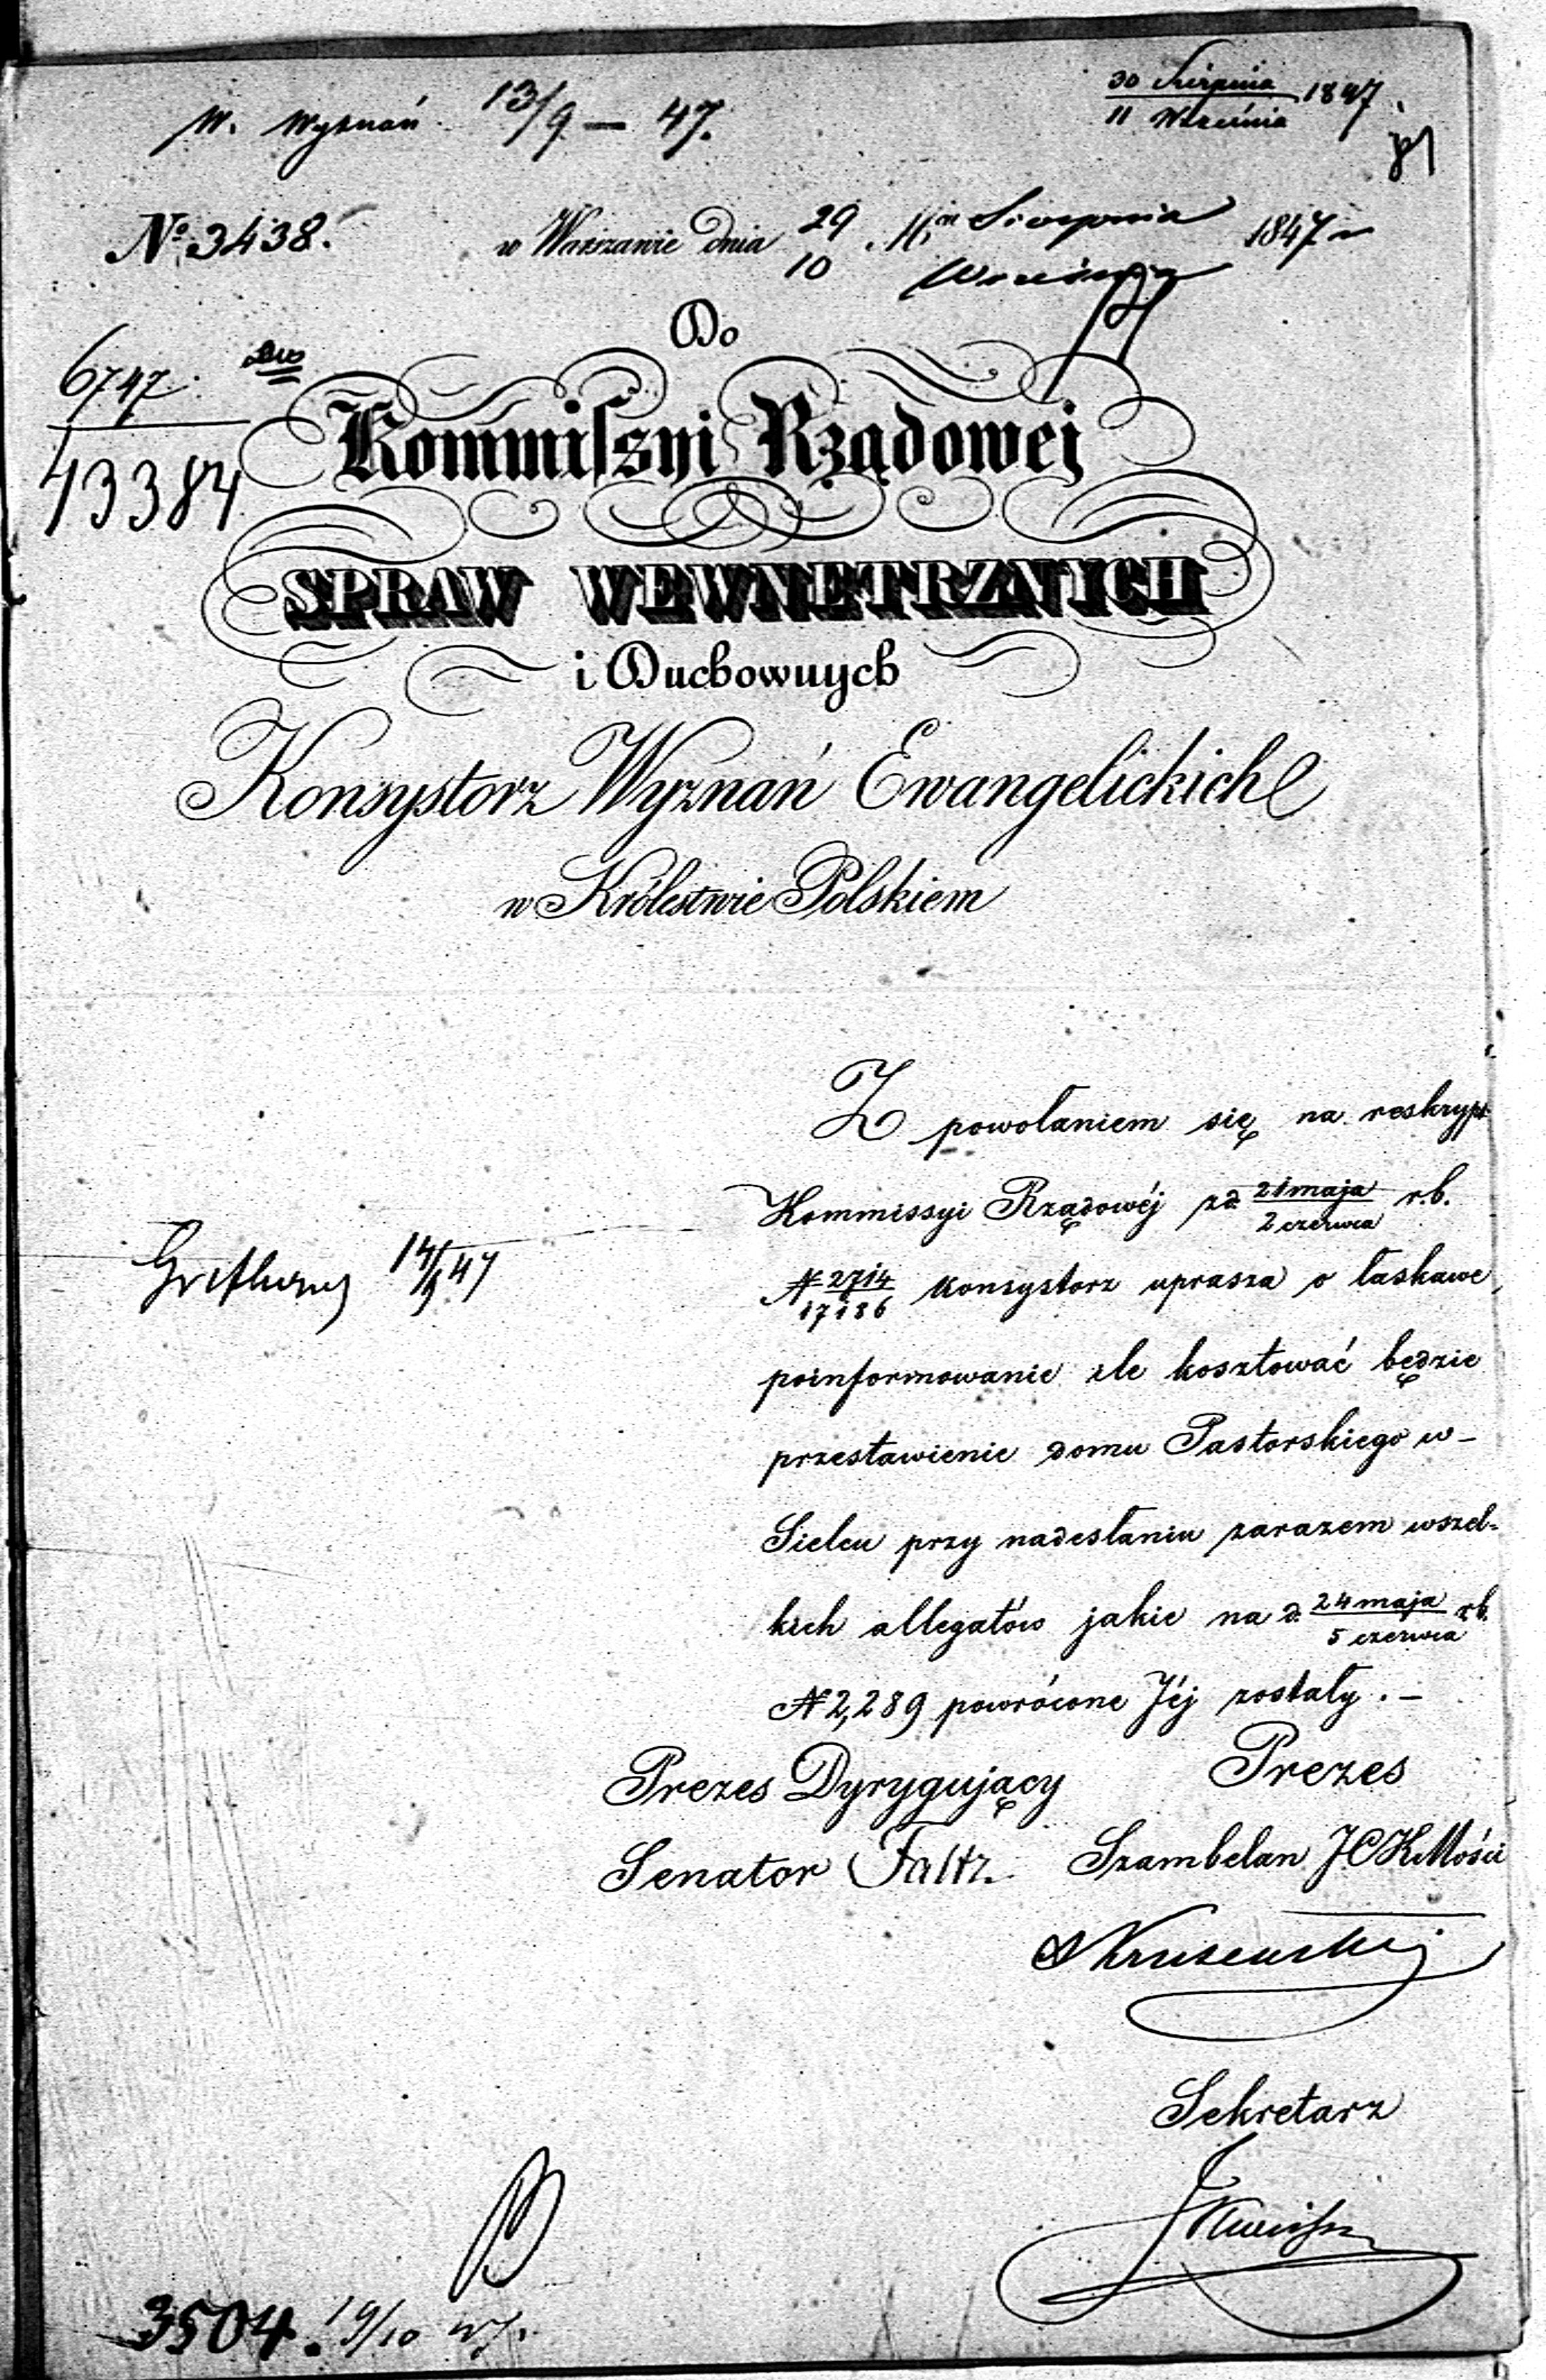 W. Wyznań 13/9 — 47.
30 Sierpnia 1847
11 Września
№ 3438. w Warszawie dnia 29 Sierpnia 1847 r
10 Września
Do
6747
13384
Kommissyi Rządowej
SPRAW WEWNETRZNYCH
i Duchownych
Konsystorz Wyznań Ewangelickich
w Królestwie Polskiem
Z powołaniem się na reskrypt
Kommissyi Rządowéj z d. 21 maja / 2 czerwca r.b.
14/9 47
N 2714 / 17186 Konsystorz uprasza o łaskawe
poinformowanie ile kosztować będzie
przestawienie domu Pastorskiego w-
Sielcu przy nadesłaniu zarazem wszel-
kich allegatów jakie na d. 24 maja / 5 czerwca r.b.
N 2,289 powrócone Jéj zostały. –
Prezes Dyrygujący Prezes
Senator Faltz. Szambelan JCKMości
Kruszewski
Sekretarz
3504. 19/10 47.